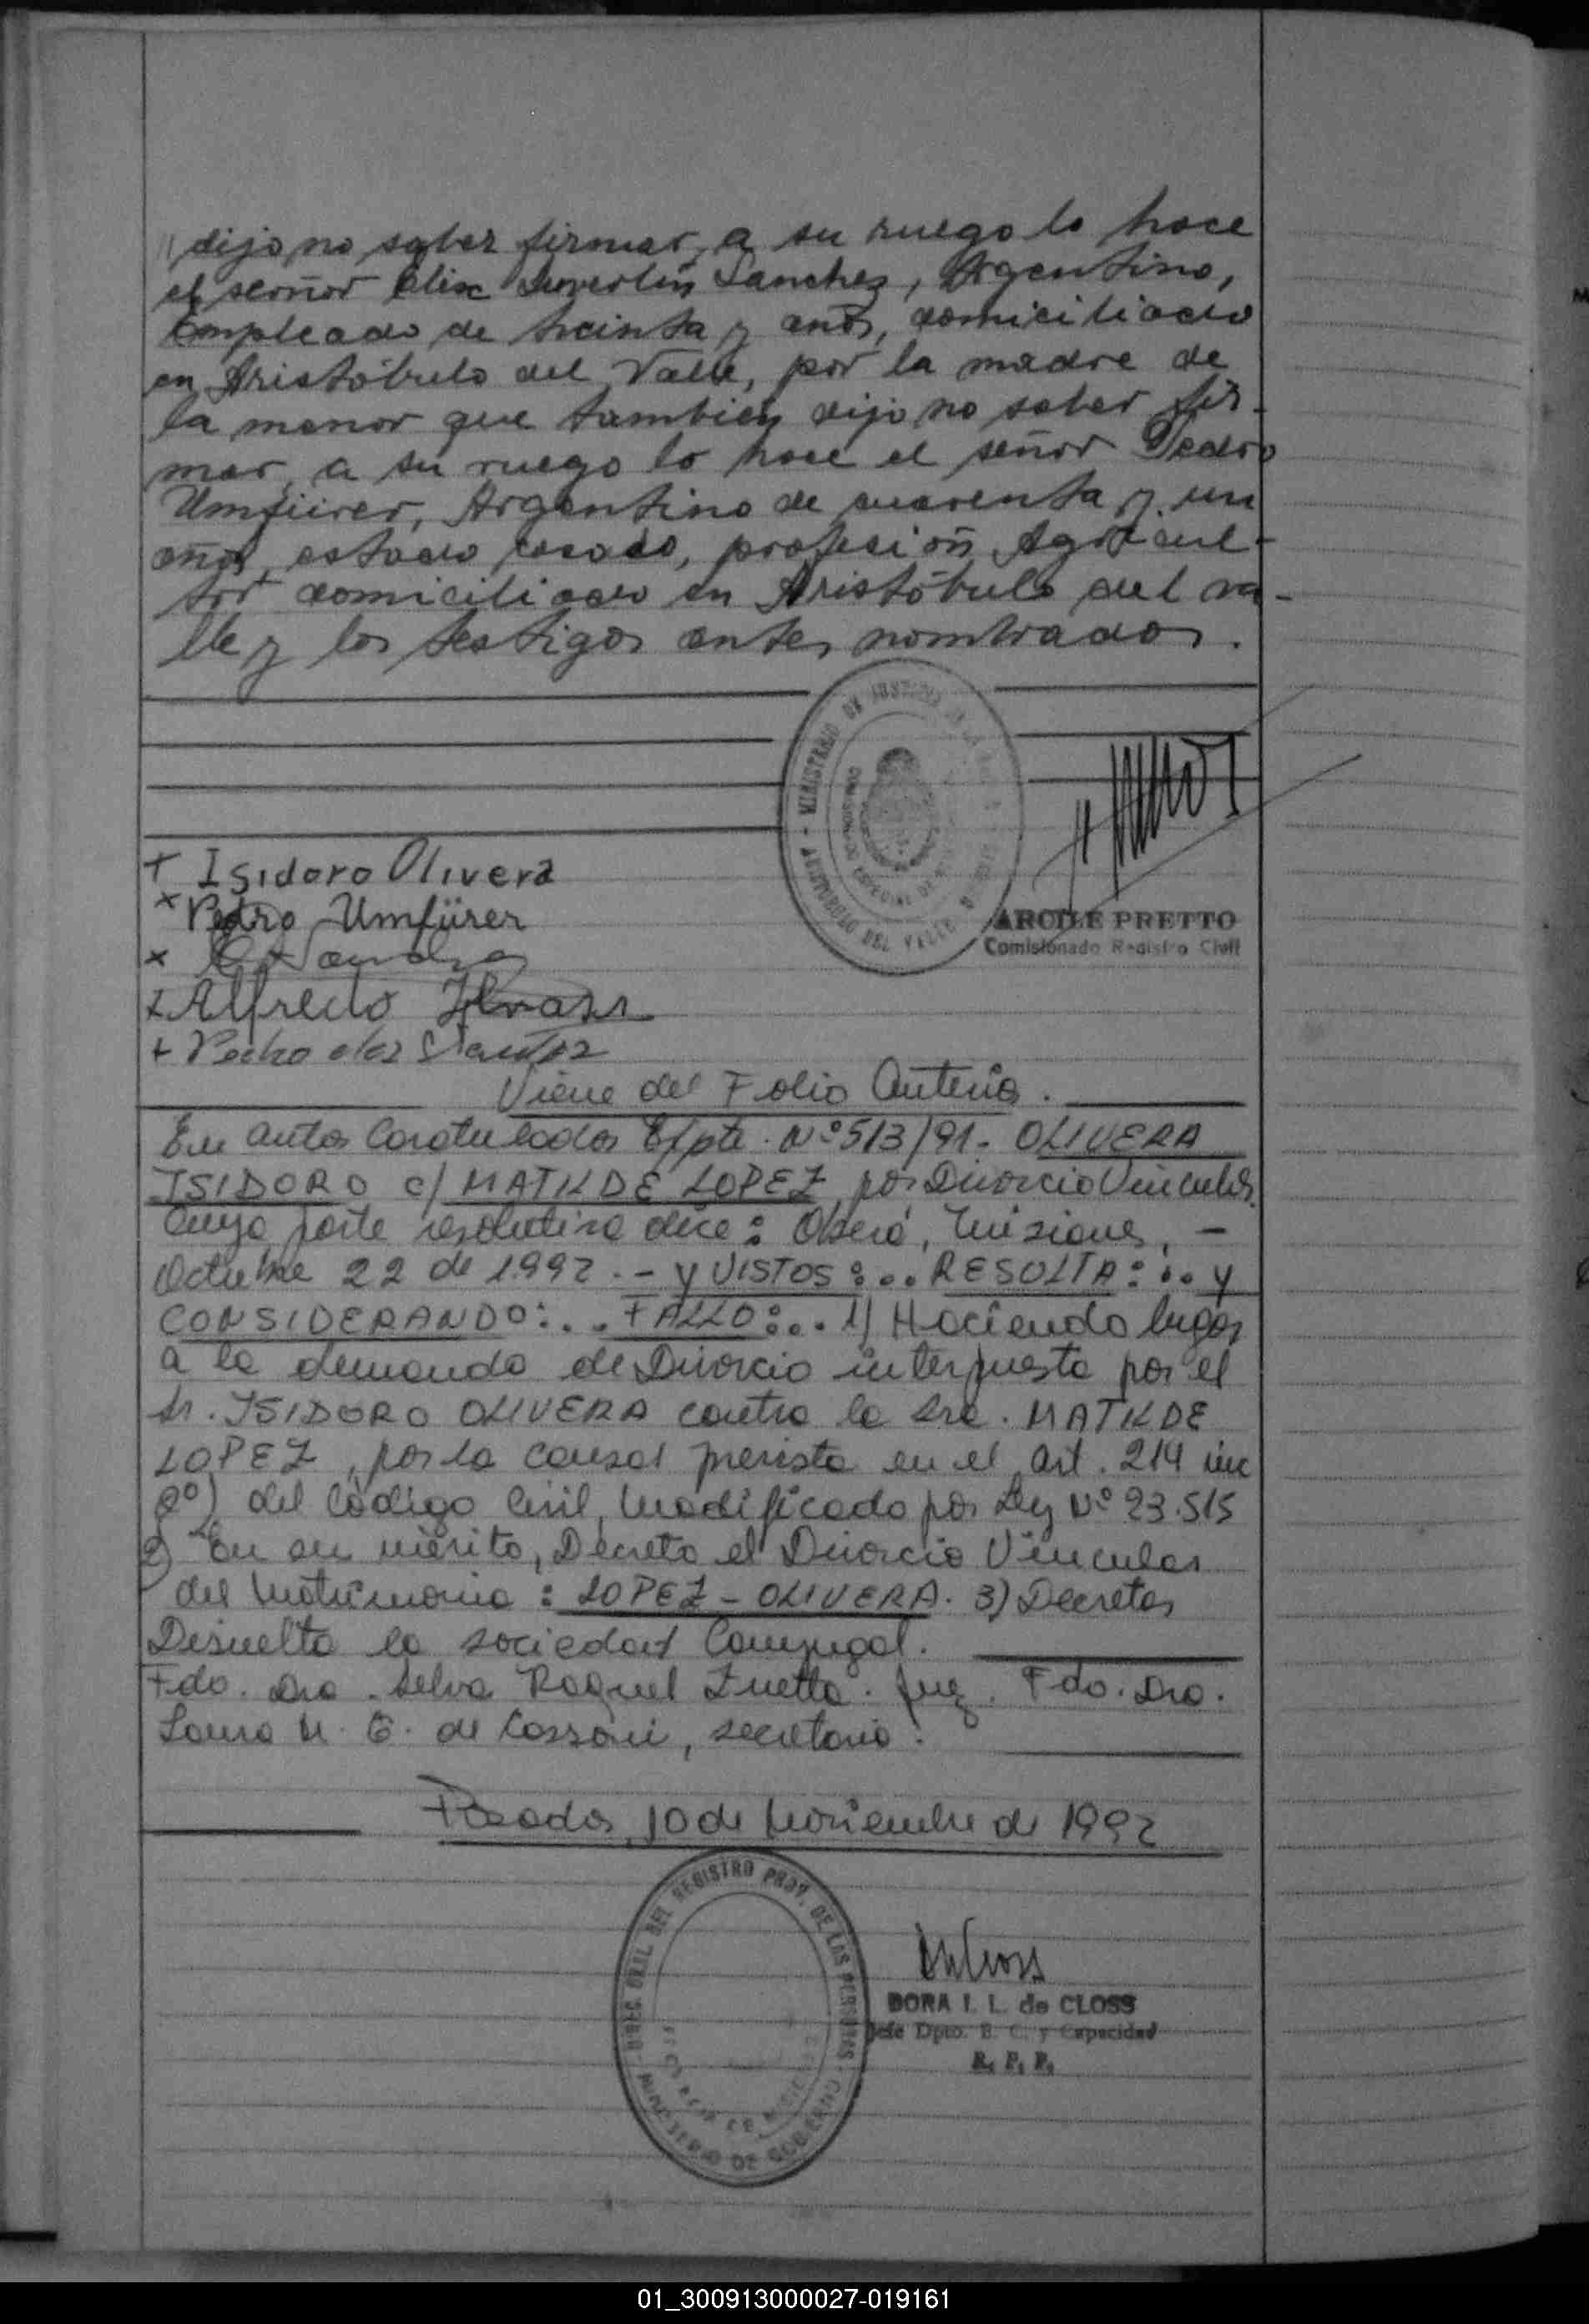 // dijo no saber firmar, a su ruego lo hace
el señor Elix Sanchez, Argentino,
Empleado de treinta y años, domiciliado
en Aristóbulo del Valle, por la madre de
la menor que tambien dijo no saber fir-
mar, a su ruego lo hace el señor Pedro
Umfürer, Argentino de cuarenta y un
años, estado casado, profesión Agricul-
tor domiciliado en Aristóbulo del va-
lle y los testigos antes nombrados.
MINISTERIO DE JUSTICIA DE LA
ARISTOBULO DEL VALLE
+ Isidoro Olivera
x Pedro Umfürer
x
+ Alfredo
+ Pedro dos Santos
ARCILE PRETTO
Comisionado Registro Civil
Viene del Folio Anterior.
En autos Caratulados Expte. Nº 513/91- OLIVERA
ISIDORO c/ MATILDE LOPEZ por Divorcio Vincular
Cuya parte resolutiva dice: Oberá, Misiones, -
Octubre 22 de 1992.- Y VISTOS:... RESULTA:... Y
CONSIDERANDO:... FALLO:... 1) Haciendo lugar
a la demanda de Divorcio interpuesta por el
Sr. ISIDORO OLIVERA contra la Sra. MATILDE
LOPEZ, por la causal prevista en el art. 214 inc
2º) del Código Civil, modificado por Ley Nº 23.515
2) En su mérito, Decreto el Divorcio Vincular
del Matrimonio: LOPEZ - OLIVERA. 3) Decretar
Disuelta la sociedad Conyugal.
Fdo. Dra. Selva Raquel Zuetta. Juez. Fdo. Dra.
Laura de secretaria.
Posadas, 10 de Noviembre de 1992
DIREC. GRAL DEL REGISTRO PROV. DE LAS PERSONAS
MINISTERIO DE GOBIERNO
DORA I. L. de CLOSS
Jefe Dpto. E. C. y Capacidad
R. P. P.
01_300913000027-019161